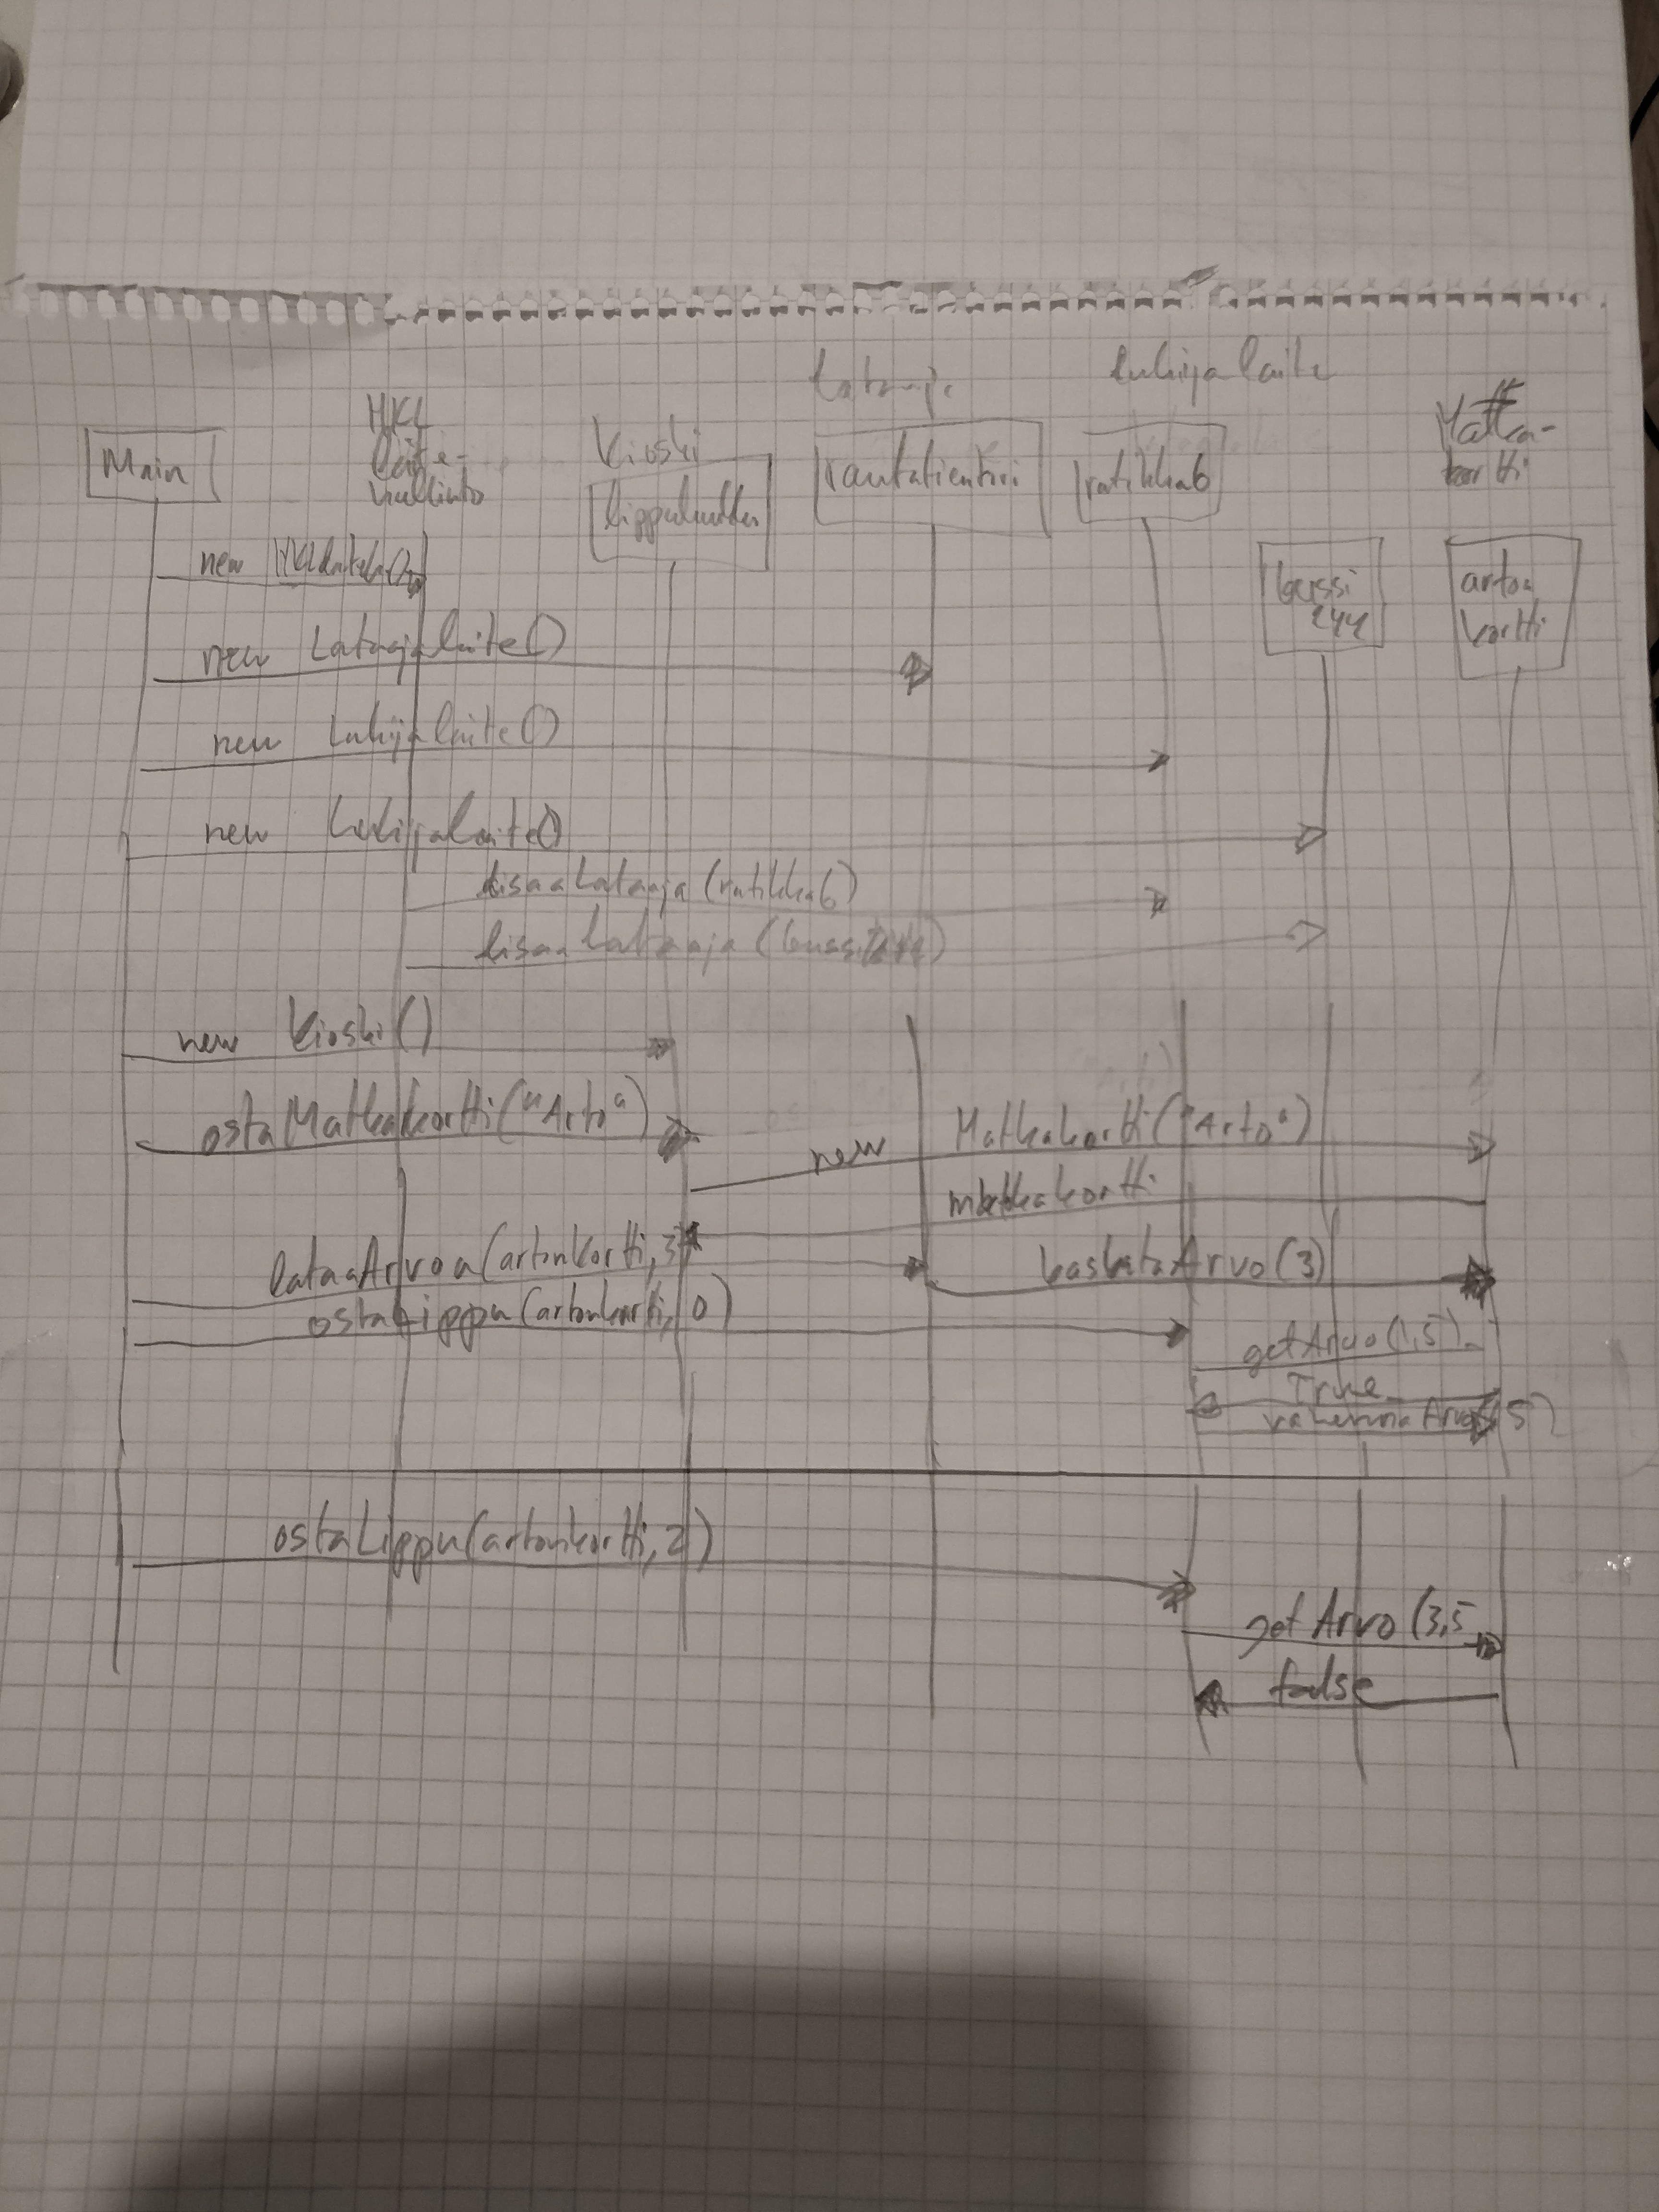 Lataaja
Lukijalaite
HKL
laite-
hallinto
Matka-
kortti
Kioski
Main
rautatientori
ratikka6
bussi
244
arton
kortti
new
new Lataajalaite()
new Lukijalaite()
new Lukijalaite()
lisaaLataaja(ratikka6)
lisaaLataaja(
new Kioski()
ostaMatkakortti("Arto")
new Matkakortti("Arto")
matkakortti
lataaArvoa(artonkortti,3)
kasvataArvo(3)
ostaLippu(artonkortti, 0)
getArvo(1,5)
True
ostaLippu(artonkortti, 2)
getArvo(3,5
false